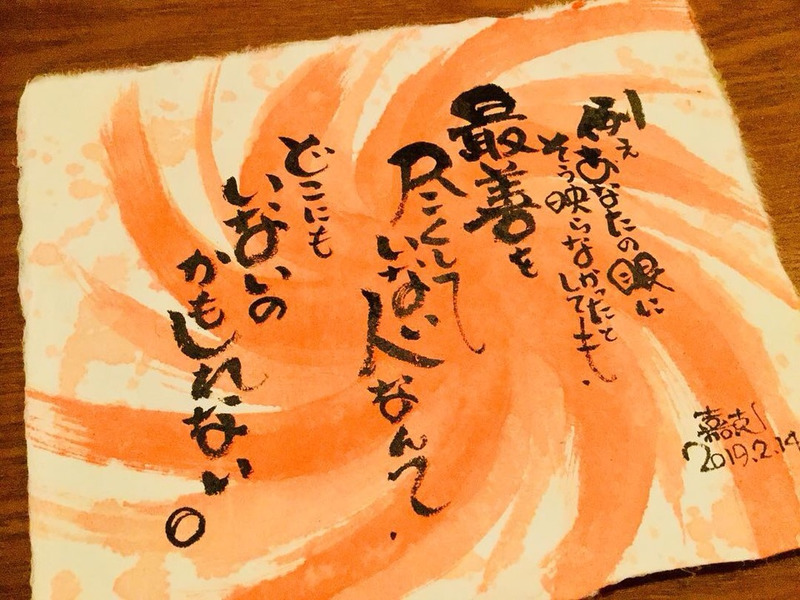 例えあなたの眼に
そう映らなかったと
しても.
最善を
尽くして
いない人なんて.
どこにも
いないの
かもしれない。
2019.2.14